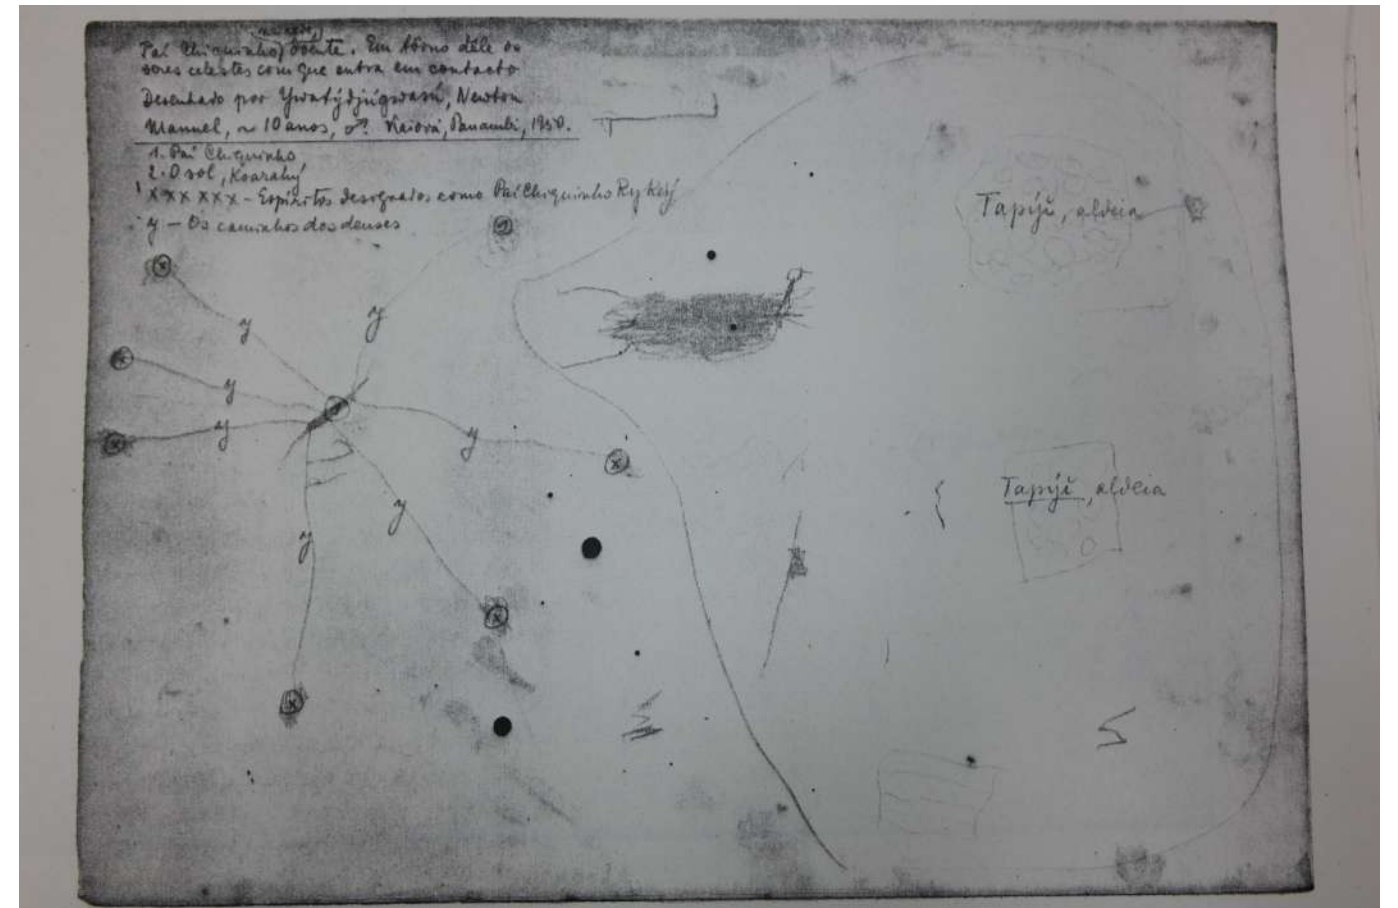 Paí Chiquinho, doente. Em tôrno dêle os
seres celestes com que entra em contacto
Desenhado por Ywatýdjúgwasú, Newton
Manuel, ~ 10 anos, ♂. Kaiová, Panambi, 1950.
1. Paí Chiquinho
2. O sol, Kwarahý
x x x x x x - Espíritos designados como Paí Chiquinho Rykeý
y - Os caminhos dos deuses
Tapýi, aldeia
y
y
y
y
y
Tapýi, aldeia
y
y
x
x
x
x
x
x